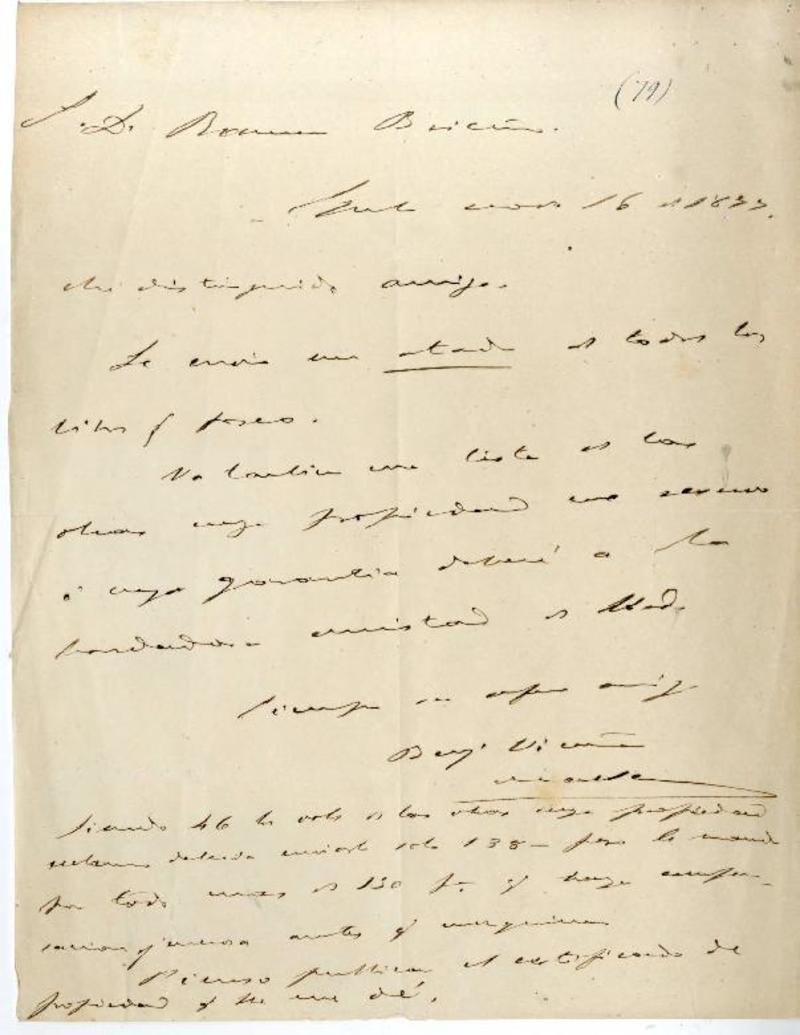 (79)
S. D. Ramon Briceño.
enero 16 de 1877.
Mi distinguido amigo.
Le envio un atado de todos los
libros q poseo.
Va tambien una lista de las
obras cuya propiedad me reservo
i cuya garantia deberé a la
bondadosa amistad de Ud.
Siempre su afmo amigo
Benj. Vicuña
Mackenna
Siendo 46 los vols de las obras cuya propiedad
reclamo deberia enviarle solo 138 — pero le mando
por todo mas de 150 pa q haya compen-
sacion
Pienso publicar el certificado de
propiedad q Ud me dé.